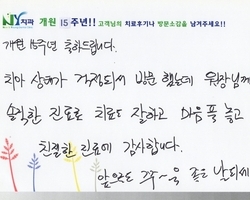 NY치과 개원 15주년!! 고객님의 치료후기나 방문소감을 남겨주세요!!
개원 15주년 축하드립니다.
치아 상태가 걱정되서 방문했는데 원장님께
솔직한 진료로 치료도 잘하고 마음 풀 놓고
친절한 진료에 감사합니다.
앞으로도 쭈~욱 좋은